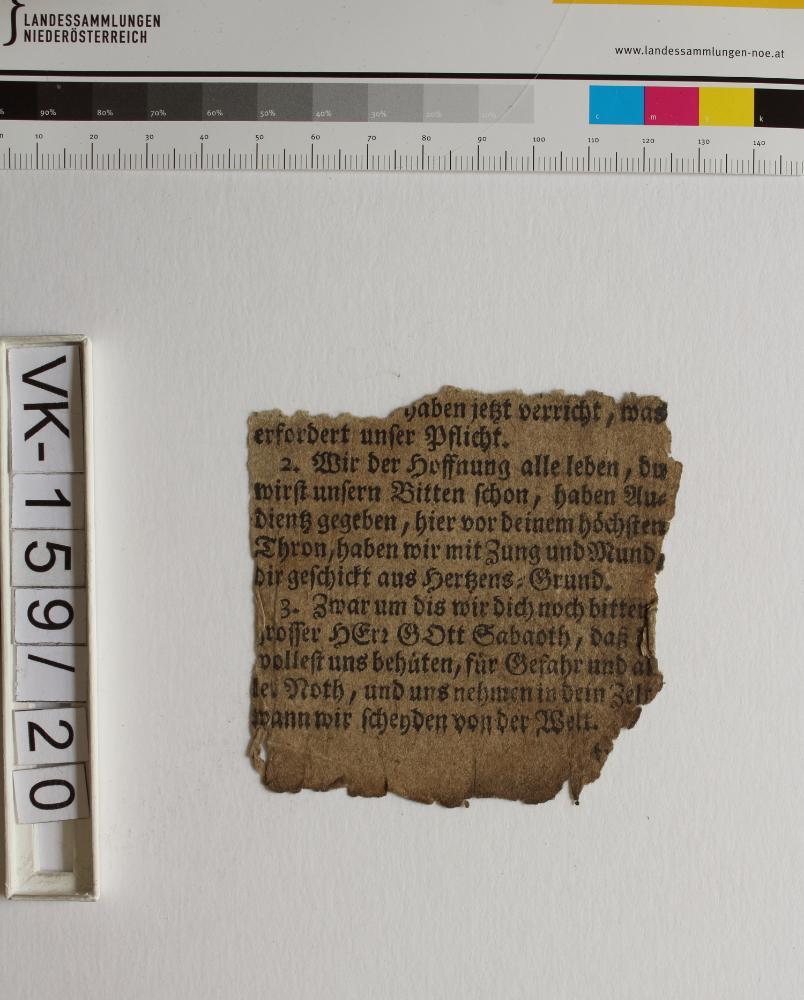 LANDESSAMMLUNGEN
NIEDERÖSTERREICH
www.landessammlungen-noe.at
90% 80% 70% 60% 50% 40% 30% 20% 10%
c m y k
10 20 30 40 50 60 70 80 90 100 110 120 130 140
VK-159/20
haben jetzt verricht, was
erfordert unser Pflicht.
2. Wir der Hoffnung alle leben, du
wirst unsern Bitten schon, haben Au-
dientz gegeben, hier vor deinem höchsten
Thron, haben wir mit Zung und Mund,
dir geschickt aus Hertzens-Grund.
3. Zwar um dis wir dich noch bitten
grosser HErr GOtt Sabaoth, daß
wollest uns behüten, für Gefahr und al
ler Noth, und uns nehmen in dein Zelt
wann wir scheyden von der Welt.